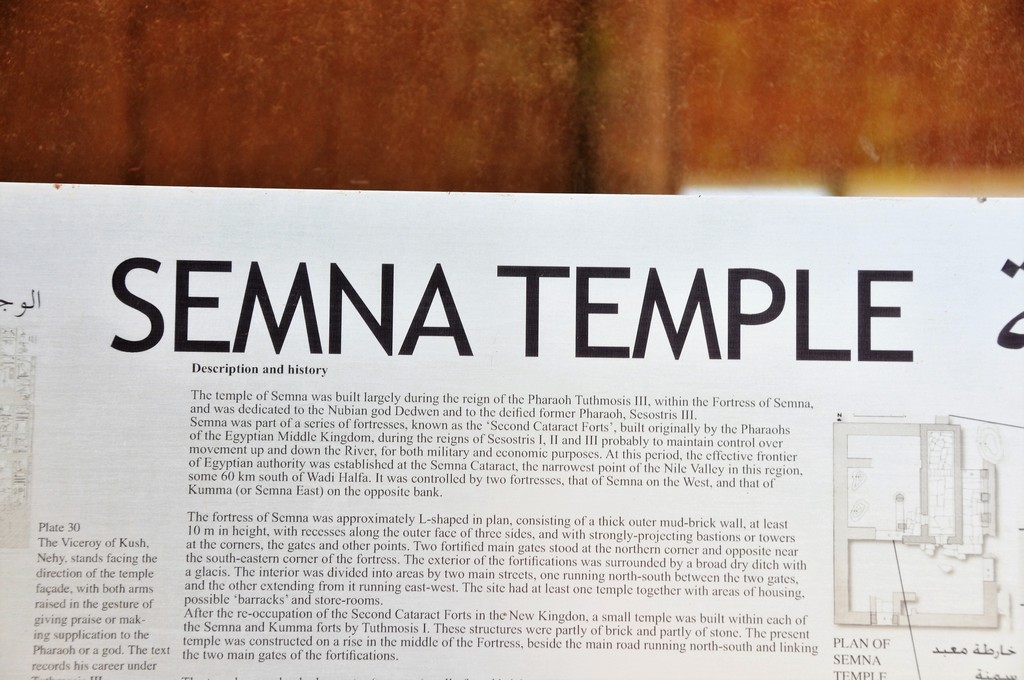 SEMNA TEMPLE
الوج
ة
Description and history
The temple of Semna was built largely during the reign of the Pharaoh Tuthmosis III, within the Fortress of Semna,
and was dedicated to the Nubian god Dedwen and to the deified former Pharaoh, Sesostris III.
Semna was part of a series of fortresses, known as the ‘Second Cataract Forts’, built originally by the Pharaohs
of the Egyptian Middle Kingdom, during the reigns of Sesostris I, II and III probably to maintain control over
movement up and down the River, for both military and economic purposes. At this period, the effective frontier
of Egyptian authority was established at the Semna Cataract, the narrowest point of the Nile Valley in this region,
some 60 km south of Wadi Halfa. It was controlled by two fortresses, that of Semna on the West, and that of
Kumma (or Semna East) on the opposite bank.
The fortress of Semna was approximately L-shaped in plan, consisting of a thick outer mud-brick wall, at least
10 m in height, with recesses along the outer face of three sides, and with strongly-projecting bastions or towers
at the corners, the gates and other points. Two fortified main gates stood at the northern corner and opposite near
the south-eastern corner of the fortress. The exterior of the fortifications was surrounded by a broad dry ditch with
a glacis. The interior was divided into areas by two main streets, one running north-south between the two gates,
and the other extending from it running east-west. The site had at least one temple together with areas of housing,
possible ‘barracks’ and store-rooms.
After the re-occupation of the Second Cataract Forts in the New Kingdon, a small temple was built within each of
the Semna and Kumma forts by Tuthmosis I. These structures were partly of brick and partly of stone. The present
temple was constructed on a rise in the middle of the Fortress, beside the main road running north-south and linking
the two main gates of the fortifications.
Plate 30
The Viceroy of Kush,
Nehy, stands facing the
direction of the temple
façade, with both arms
raised in the gesture of
giving praise or mak-
ing supplication to the
Pharaoh or a god. The text
records his career under
Tuthmosis III
N
PLAN OF
SEMNA
TEMPLE
خارطة معبد
سمنة